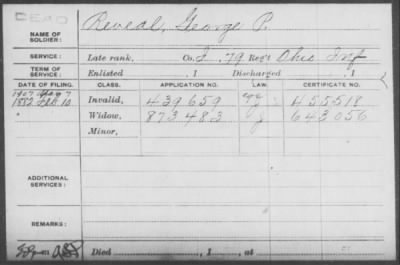 DEAD
NAME OF SOLDIER: Reveal, George P.
SERVICE: Late rank, Co. I, 79 Reg't Ohio Inf
TERM OF SERVICE: Enlisted , 1 Discharged , 1
DATE OF FILING. CLASS. APPLICATION NO. LAW. CERTIFICATE NO.
1907
1882 Feb. 10 Invalid, 439 659 455518
" Widow, 873 483 643 056
Minor,
ADDITIONAL SERVICES:
REMARKS:
Died , 1 , at